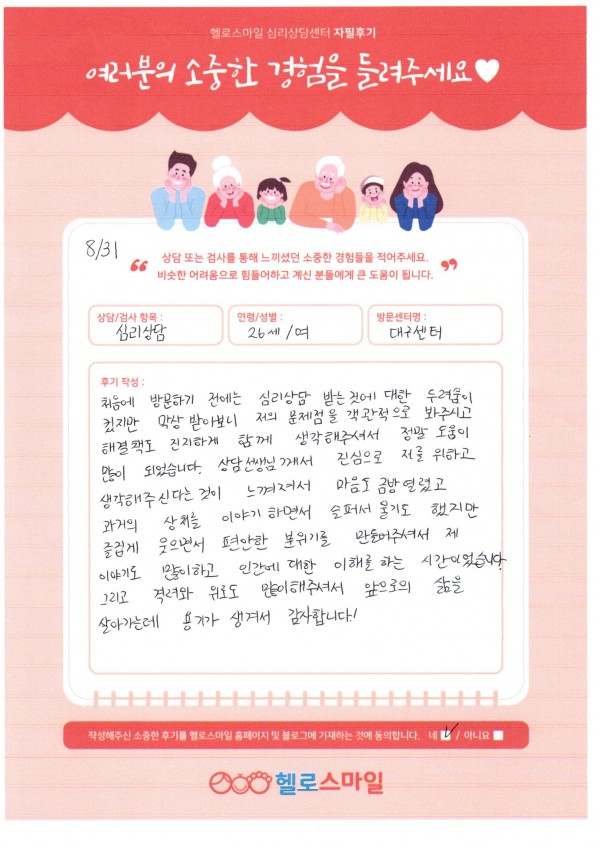 헬로스마일 심리상담센터 자필후기
여러분의 소중한 경험을 들려주세요♥
8/31
“ 상담 또는 검사를 통해 느끼셨던 소중한 경험들을 적어주세요.
비슷한 어려움으로 힘들어하고 계신 분들에게 큰 도움이 됩니다. ”
상담/검사 항목 :
심리상담
연령/성별 :
26세/여
방문센터명 :
대구센터
후기 작성 :
처음에 방문하기 전에는 심리상담 받는것에 대한 두려움이
컸지만 막상 받아보니 저의 문제점을 객관적으로 봐주시고
해결책도 진지하게 함께 생각해주셔서 정말 도움이
많이 되었습니다. 상담선생님께서 진심으로 저를 위하고
생각해주신다는것이 느껴져서 마음도 금방 열렸고
과거의 상처를 이야기 하면서 슬퍼서 울기도 했지만
즐겁게 웃으면서 편안한 분위기를 만들어주셔서 제
이야기도 많이하고 인간에 대한 이해를 하는 시간이었습니다.
그리고 격려와 위로도 많이해주셔서 앞으로의 삶을
살아가는데 용기가 생겨서 감사합니다!
작성해주신 소중한 후기를 헬로스마일 홈페이지 및 블로그에 기재하는 것에 동의합니다. 네 ✓ / 아니요
헬로스마일